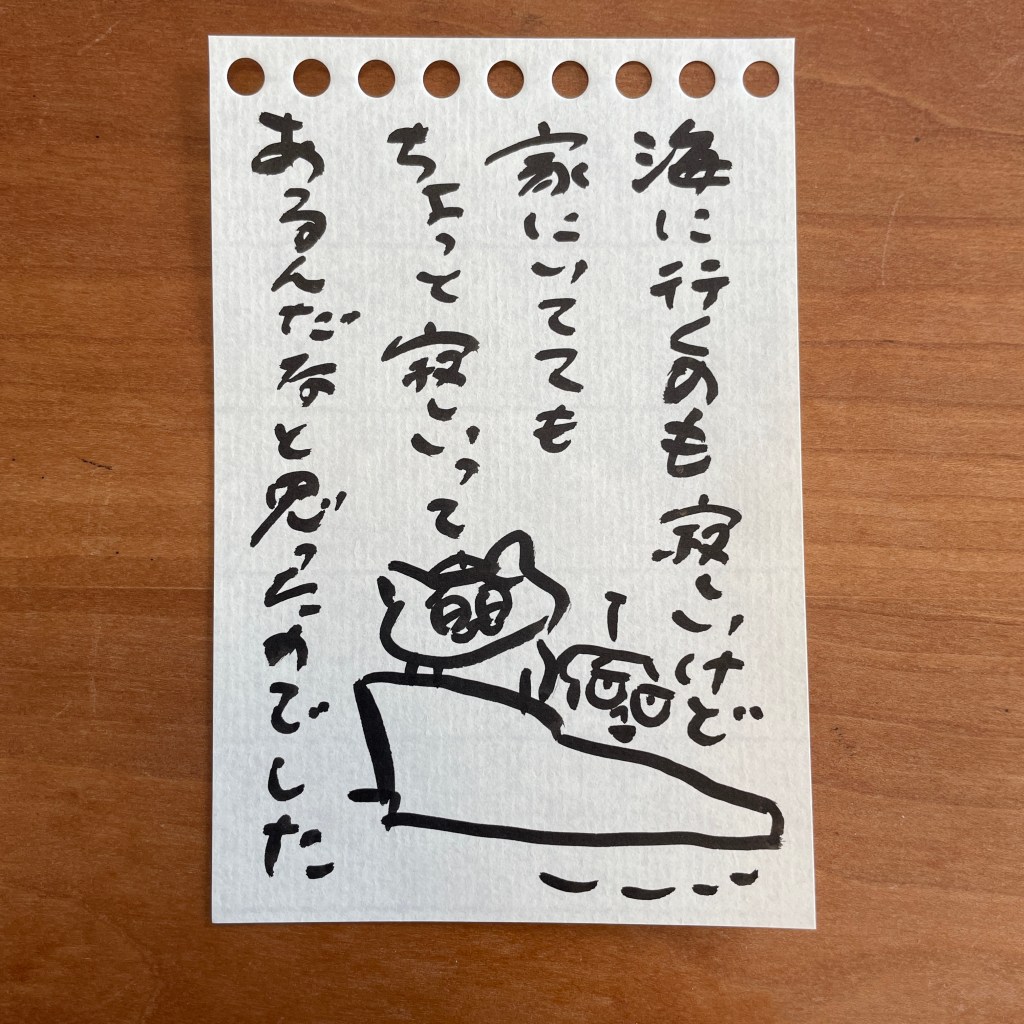 海に行くのも寂しいけど
家にいてても
ちょっと寂しいって
あるんだなと思ったのでした